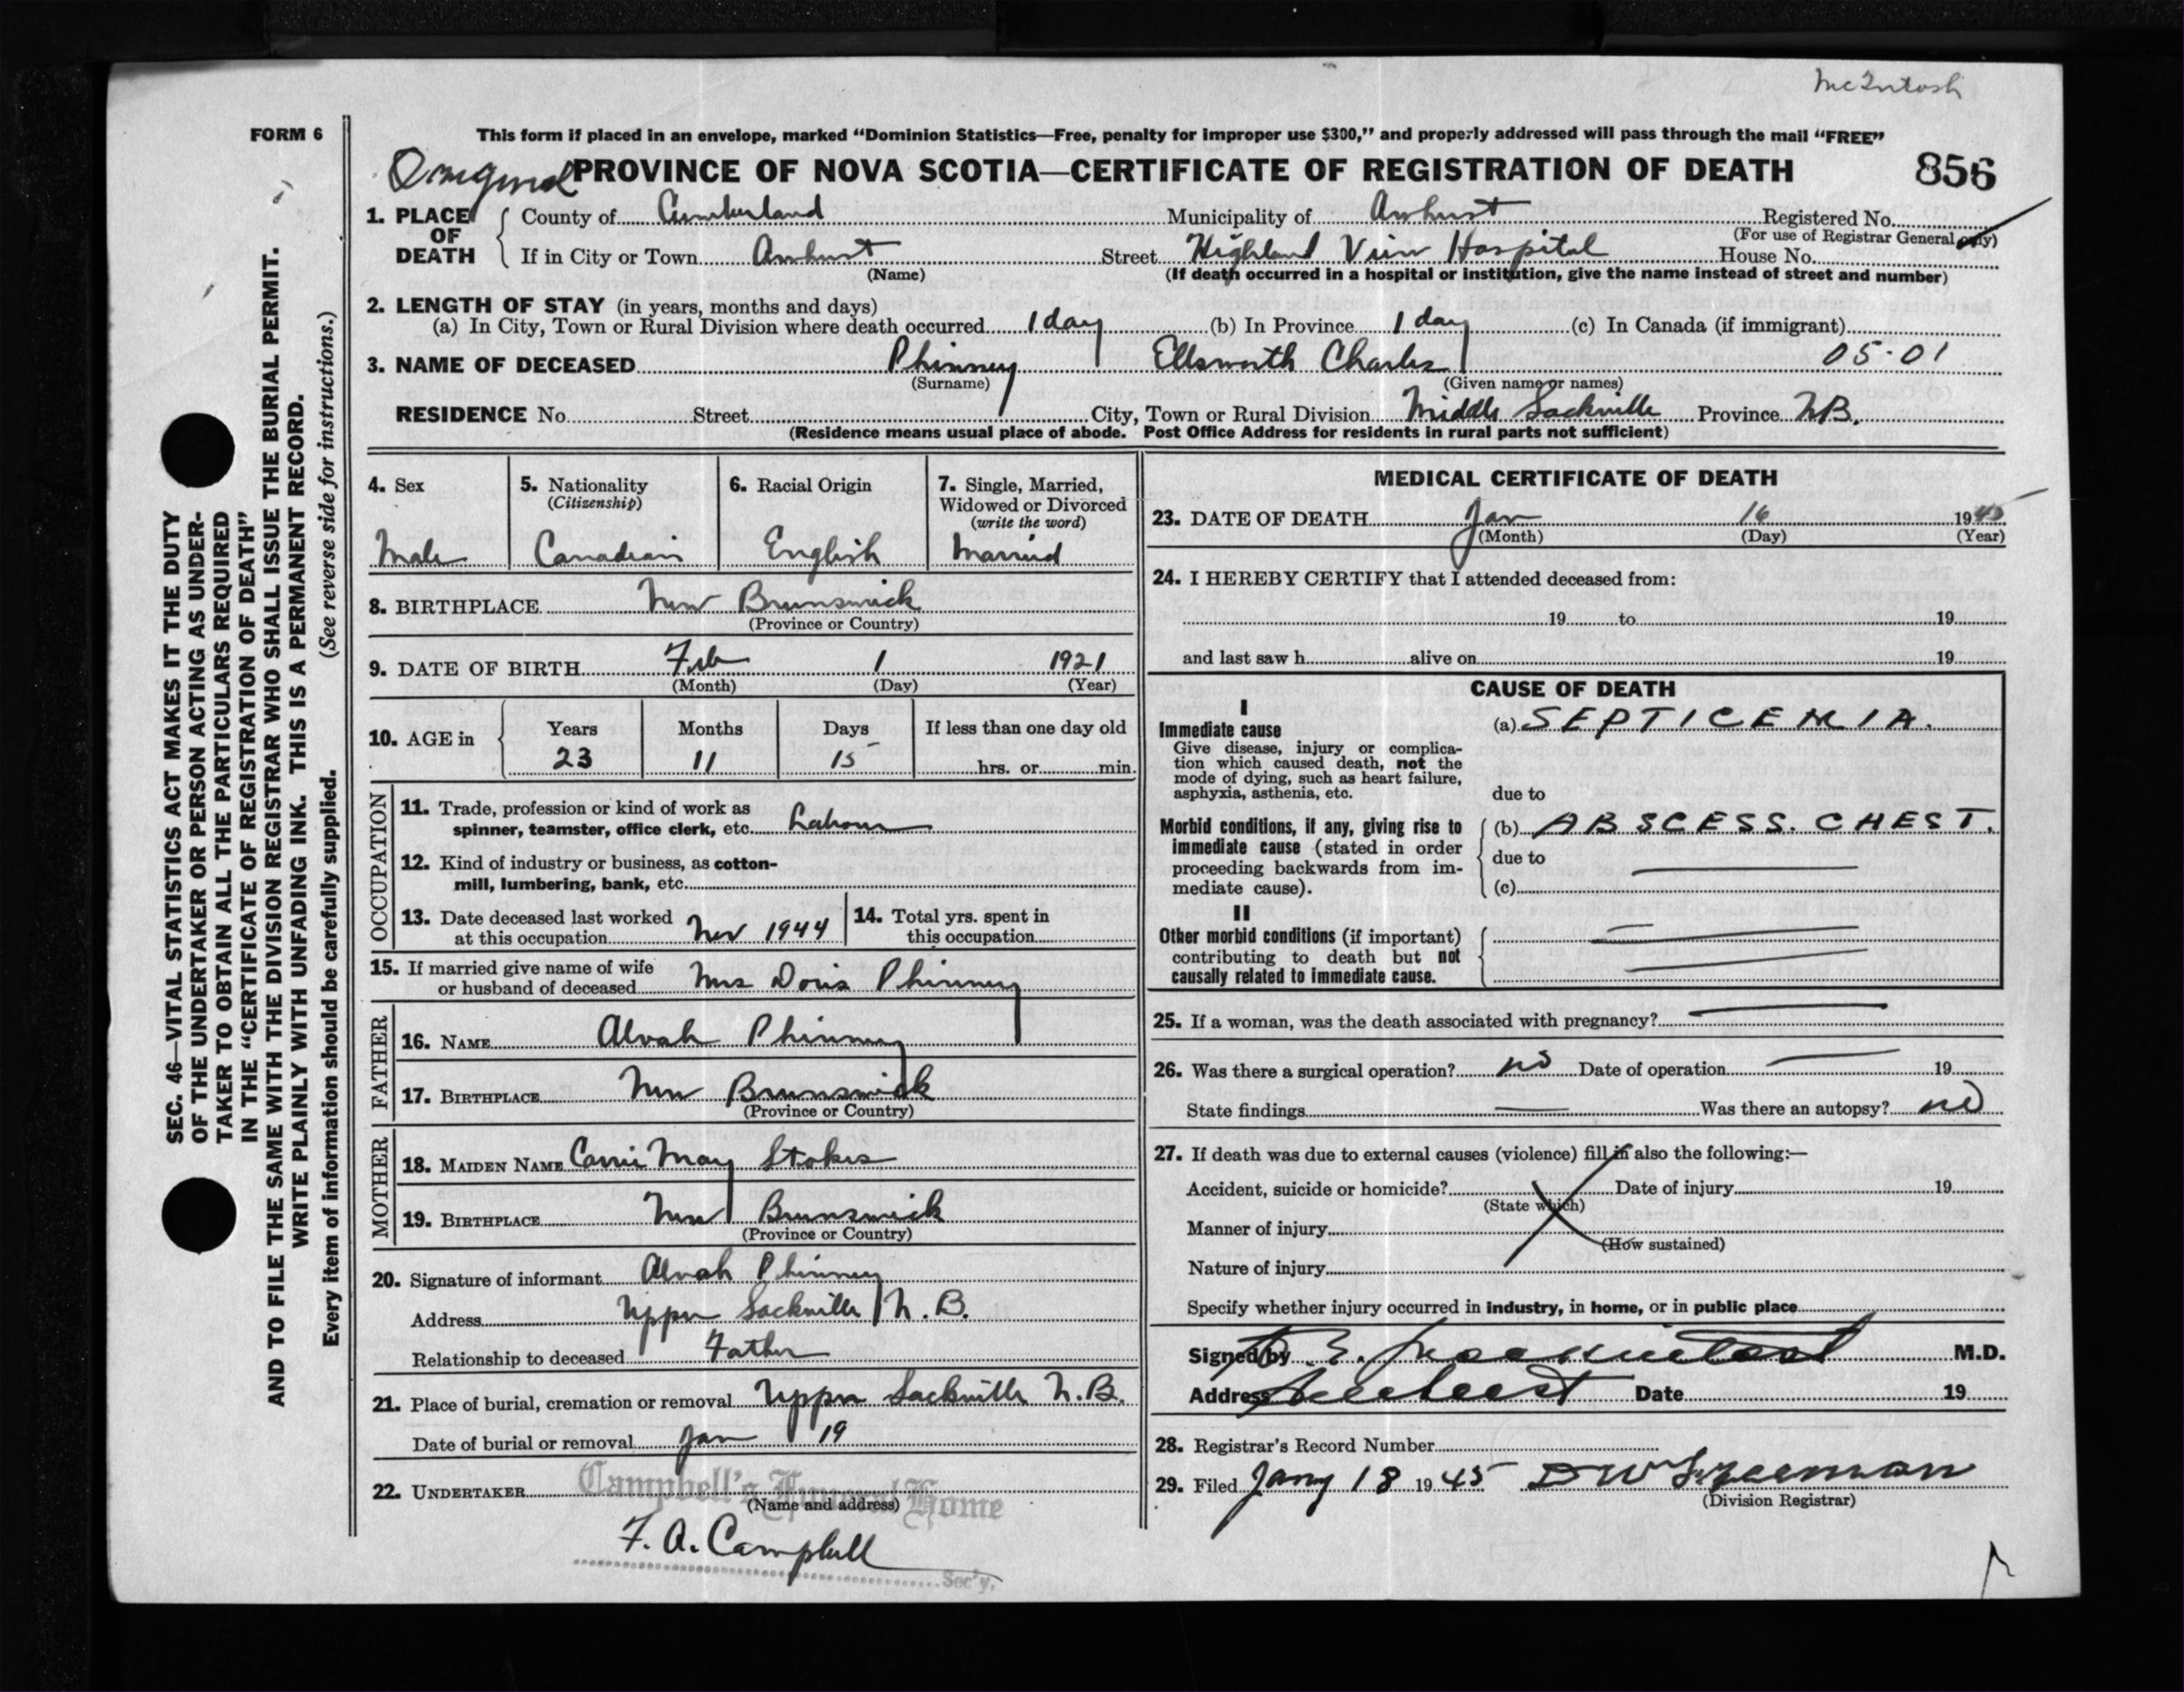 McIntosh
FORM 6
This form if placed in an envelope, marked “Dominion Statistics—Free, penalty for improper use $300,” and properly addressed will pass through the mail “FREE”
PROVINCE OF NOVA SCOTIA—CERTIFICATE OF REGISTRATION OF DEATH 856
1. PLACE OF DEATH County of Cumberland Municipality of Amherst Registered No.
(For use of Registrar General only)
If in City or Town Amherst Street Highland View Hospital House No.
(Name) (If death occurred in a hospital or institution, give the name instead of street and number)
2. LENGTH OF STAY (in years, months and days)
(a) In City, Town or Rural Division where death occurred 1 day (b) In Province 1 day (c) In Canada (if immigrant)
3. NAME OF DECEASED Phinney Ellsworth Charles 05-01
(Surname) (Given name or names)
RESIDENCE No. Street City, Town or Rural Division Middle Sackville Province N.B.
(Residence means usual place of abode. Post Office Address for residents in rural parts not sufficient)
4. Sex
Male
5. Nationality
(Citizenship)
Canadian
6. Racial Origin
English
7. Single, Married,
Widowed or Divorced
(write the word)
Married
8. BIRTHPLACE New Brunswick
(Province or Country)
9. DATE OF BIRTH Feb 1 1921
(Month) (Day) (Year)
10. AGE in Years Months Days If less than one day old
23 11 15 hrs. or min.
OCCUPATION
11. Trade, profession or kind of work as
spinner, teamster, office clerk, etc. Labour
12. Kind of industry or business, as cotton-
mill, lumbering, bank, etc.
13. Date deceased last worked
at this occupation Nov 1944
14. Total yrs. spent in
this occupation
15. If married give name of wife
or husband of deceased Mrs Doris Phinney
FATHER
16. NAME Alvah Phinney
17. BIRTHPLACE New Brunswick
(Province or Country)
MOTHER
18. MAIDEN NAME Carrie May Stokes
19. BIRTHPLACE New Brunswick
(Province or Country)
20. Signature of informant Alvah Phinney
Address Upper Sackville N.B.
Relationship to deceased Father
21. Place of burial, cremation or removal Upper Sackville N.B.
Date of burial or removal Jan 19
22. UNDERTAKER Campbell's Funeral Home
(Name and address)
F. A. Campbell
Sec'y.
MEDICAL CERTIFICATE OF DEATH
23. DATE OF DEATH Jan 16 1945
(Month) (Day) (Year)
24. I HEREBY CERTIFY that I attended deceased from:
19 to 19
and last saw h alive on 19
CAUSE OF DEATH
I
Immediate cause (a) SEPTICEMIA.
Give disease, injury or complica-
tion which caused death, not the
mode of dying, such as heart failure,
asphyxia, asthenia, etc. due to
Morbid conditions, if any, giving rise to (b) ABSCESS. CHEST.
immediate cause (stated in order
proceeding backwards from im- due to
mediate cause). (c)
II
Other morbid conditions (if important)
contributing to death but not
causally related to immediate cause.
25. If a woman, was the death associated with pregnancy?
26. Was there a surgical operation? no Date of operation 19
State findings Was there an autopsy? no
27. If death was due to external causes (violence) fill in also the following:—
Accident, suicide or homicide? Date of injury 19
(State which)
Manner of injury
(How sustained)
Nature of injury
Specify whether injury occurred in industry, in home, or in public place
Signed by M.D.
Address Amherst Date 19
28. Registrar's Record Number
29. Filed Jany 18 1945
(Division Registrar)
SEC. 46—VITAL STATISTICS ACT MAKES IT THE DUTY
OF THE UNDERTAKER OR PERSON ACTING AS UNDER-
TAKER TO OBTAIN ALL THE PARTICULARS REQUIRED
IN THE “CERTIFICATE OF REGISTRATION OF DEATH”
AND TO FILE THE SAME WITH THE DIVISION REGISTRAR WHO SHALL ISSUE THE BURIAL PERMIT.
WRITE PLAINLY WITH UNFADING INK. THIS IS A PERMANENT RECORD.
Every item of information should be carefully supplied. (See reverse side for instructions.)